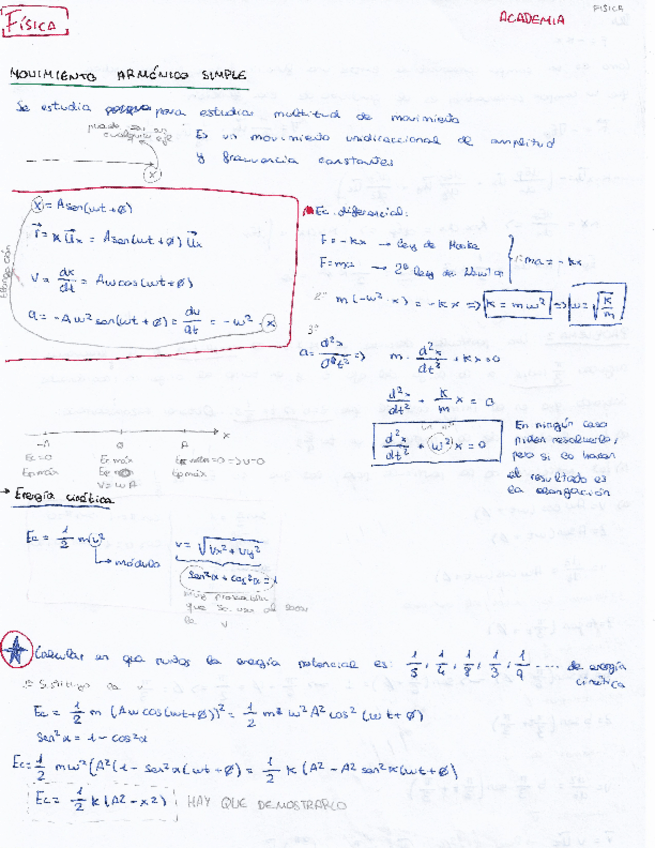 FÍSICA
ACADEMIA
FISICA
MOVIMIENTO ARMÓNICO SIMPLE
Se estudia para estudiar multitud de movimiento
puede ser en cualquier eje
Es un movimiento unidireccional de amplitud
y frecuencia constantes
x
x = A sen(ωt + ø)
r⃗ = x u⃗x = A sen(ωt + ø) u⃗x
v = dx/dt = Aω cos(ωt + ø)
a = -Aω² sen(ωt + ø) = dv/dt = -ω² · x
Elongación
Ec. diferencial:
F = -kx → Ley de Hooke
F = ma → 2º Ley de Newton
ma = -kx
2º m(-ω² · x) = -kx ⇒ k = mω² ⇒ ω = √(k/m)
3º
a = d²x/dt² ⇒ m · d²x/dt² + kx = 0
d²x/dt² + k/m x = 0
d²x/dt² + ω² x = 0
En ningún caso
piden resolverla,
pero si lo hacen
el resultado es
la elongación
-A 0 A x
Ec=0
Ep máx
Ec máx
v = ωA
⇒ v=0
Ep máx
→ Energía cinética
Ec = 1/2 m v²
→ módulo
v = √(vx² + vy²)
sen²α + cos²α = 1
Muy probable
que se use al sacar
la v
Calcular en que puntos la energía potencial es: 1/5, 1/4, 1/8, 1/3, 1/9 .... de energía
cinética
Ec = 1/2 m (Aω cos(ωt + ø))² = 1/2 m ω² A² cos² (ωt + ø)
sen²x = 1 - cos²x
Ec = 1/2 mω² (A² (1 - sen²x(ωt + ø) = 1/2 k (A² - A² sen²x(ωt + ø)
Ec = 1/2 k (A² - x²) HAY QUE DEMOSTRARLO